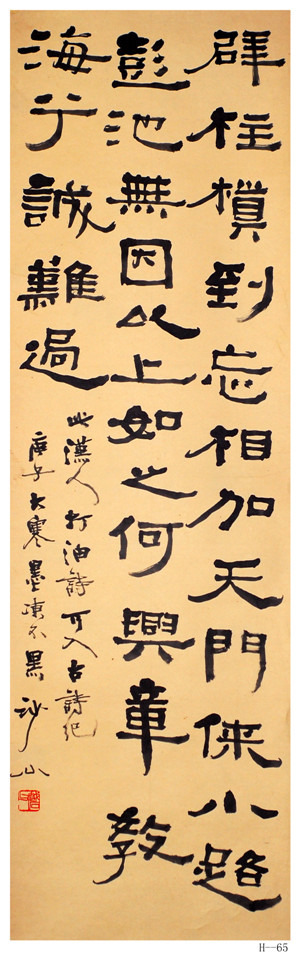 辟柱槙到忘相加天門俠小路
彭池無因以上如之何興章教
海兮誠難過
此漢人打油詩可入古詩紀
庚子大寒墨凍不黑 沙山
H--65